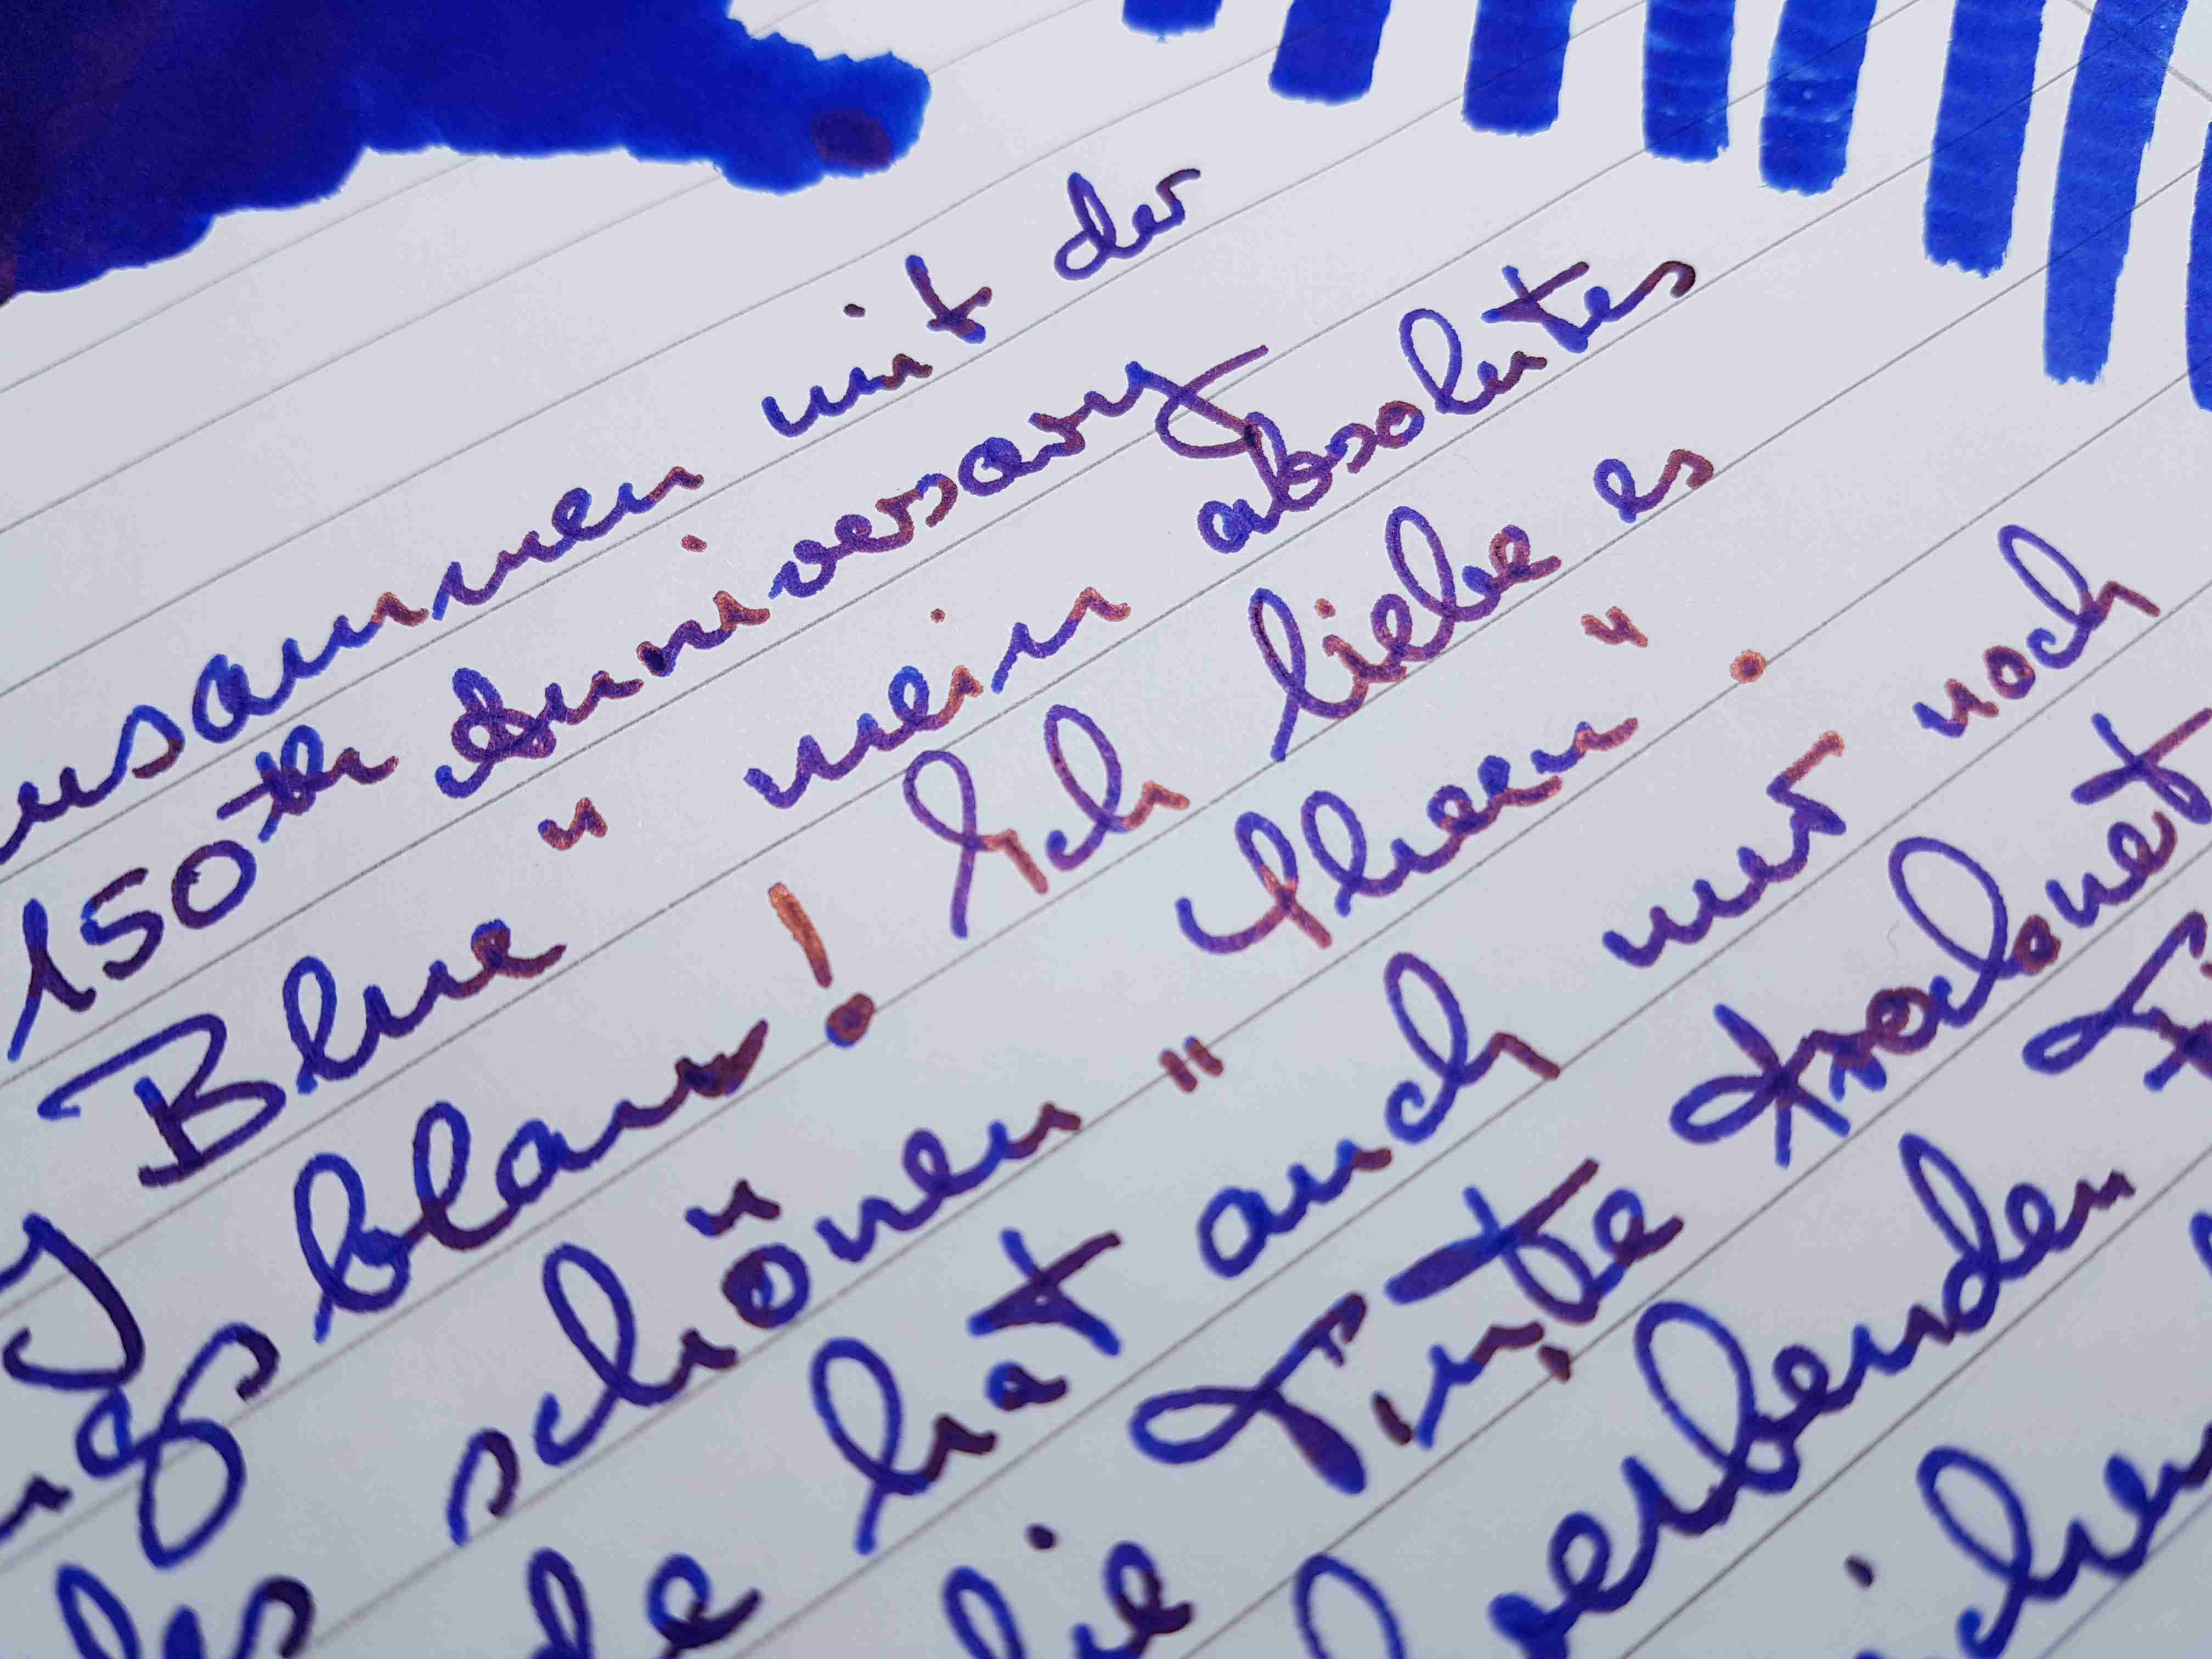 usammen mit der
150th Anniversary
Blue " mein absolutes
ngsblau! Ich liebe es
schönen " Sheen " .
hat auch nur noch
Tinte trocknet